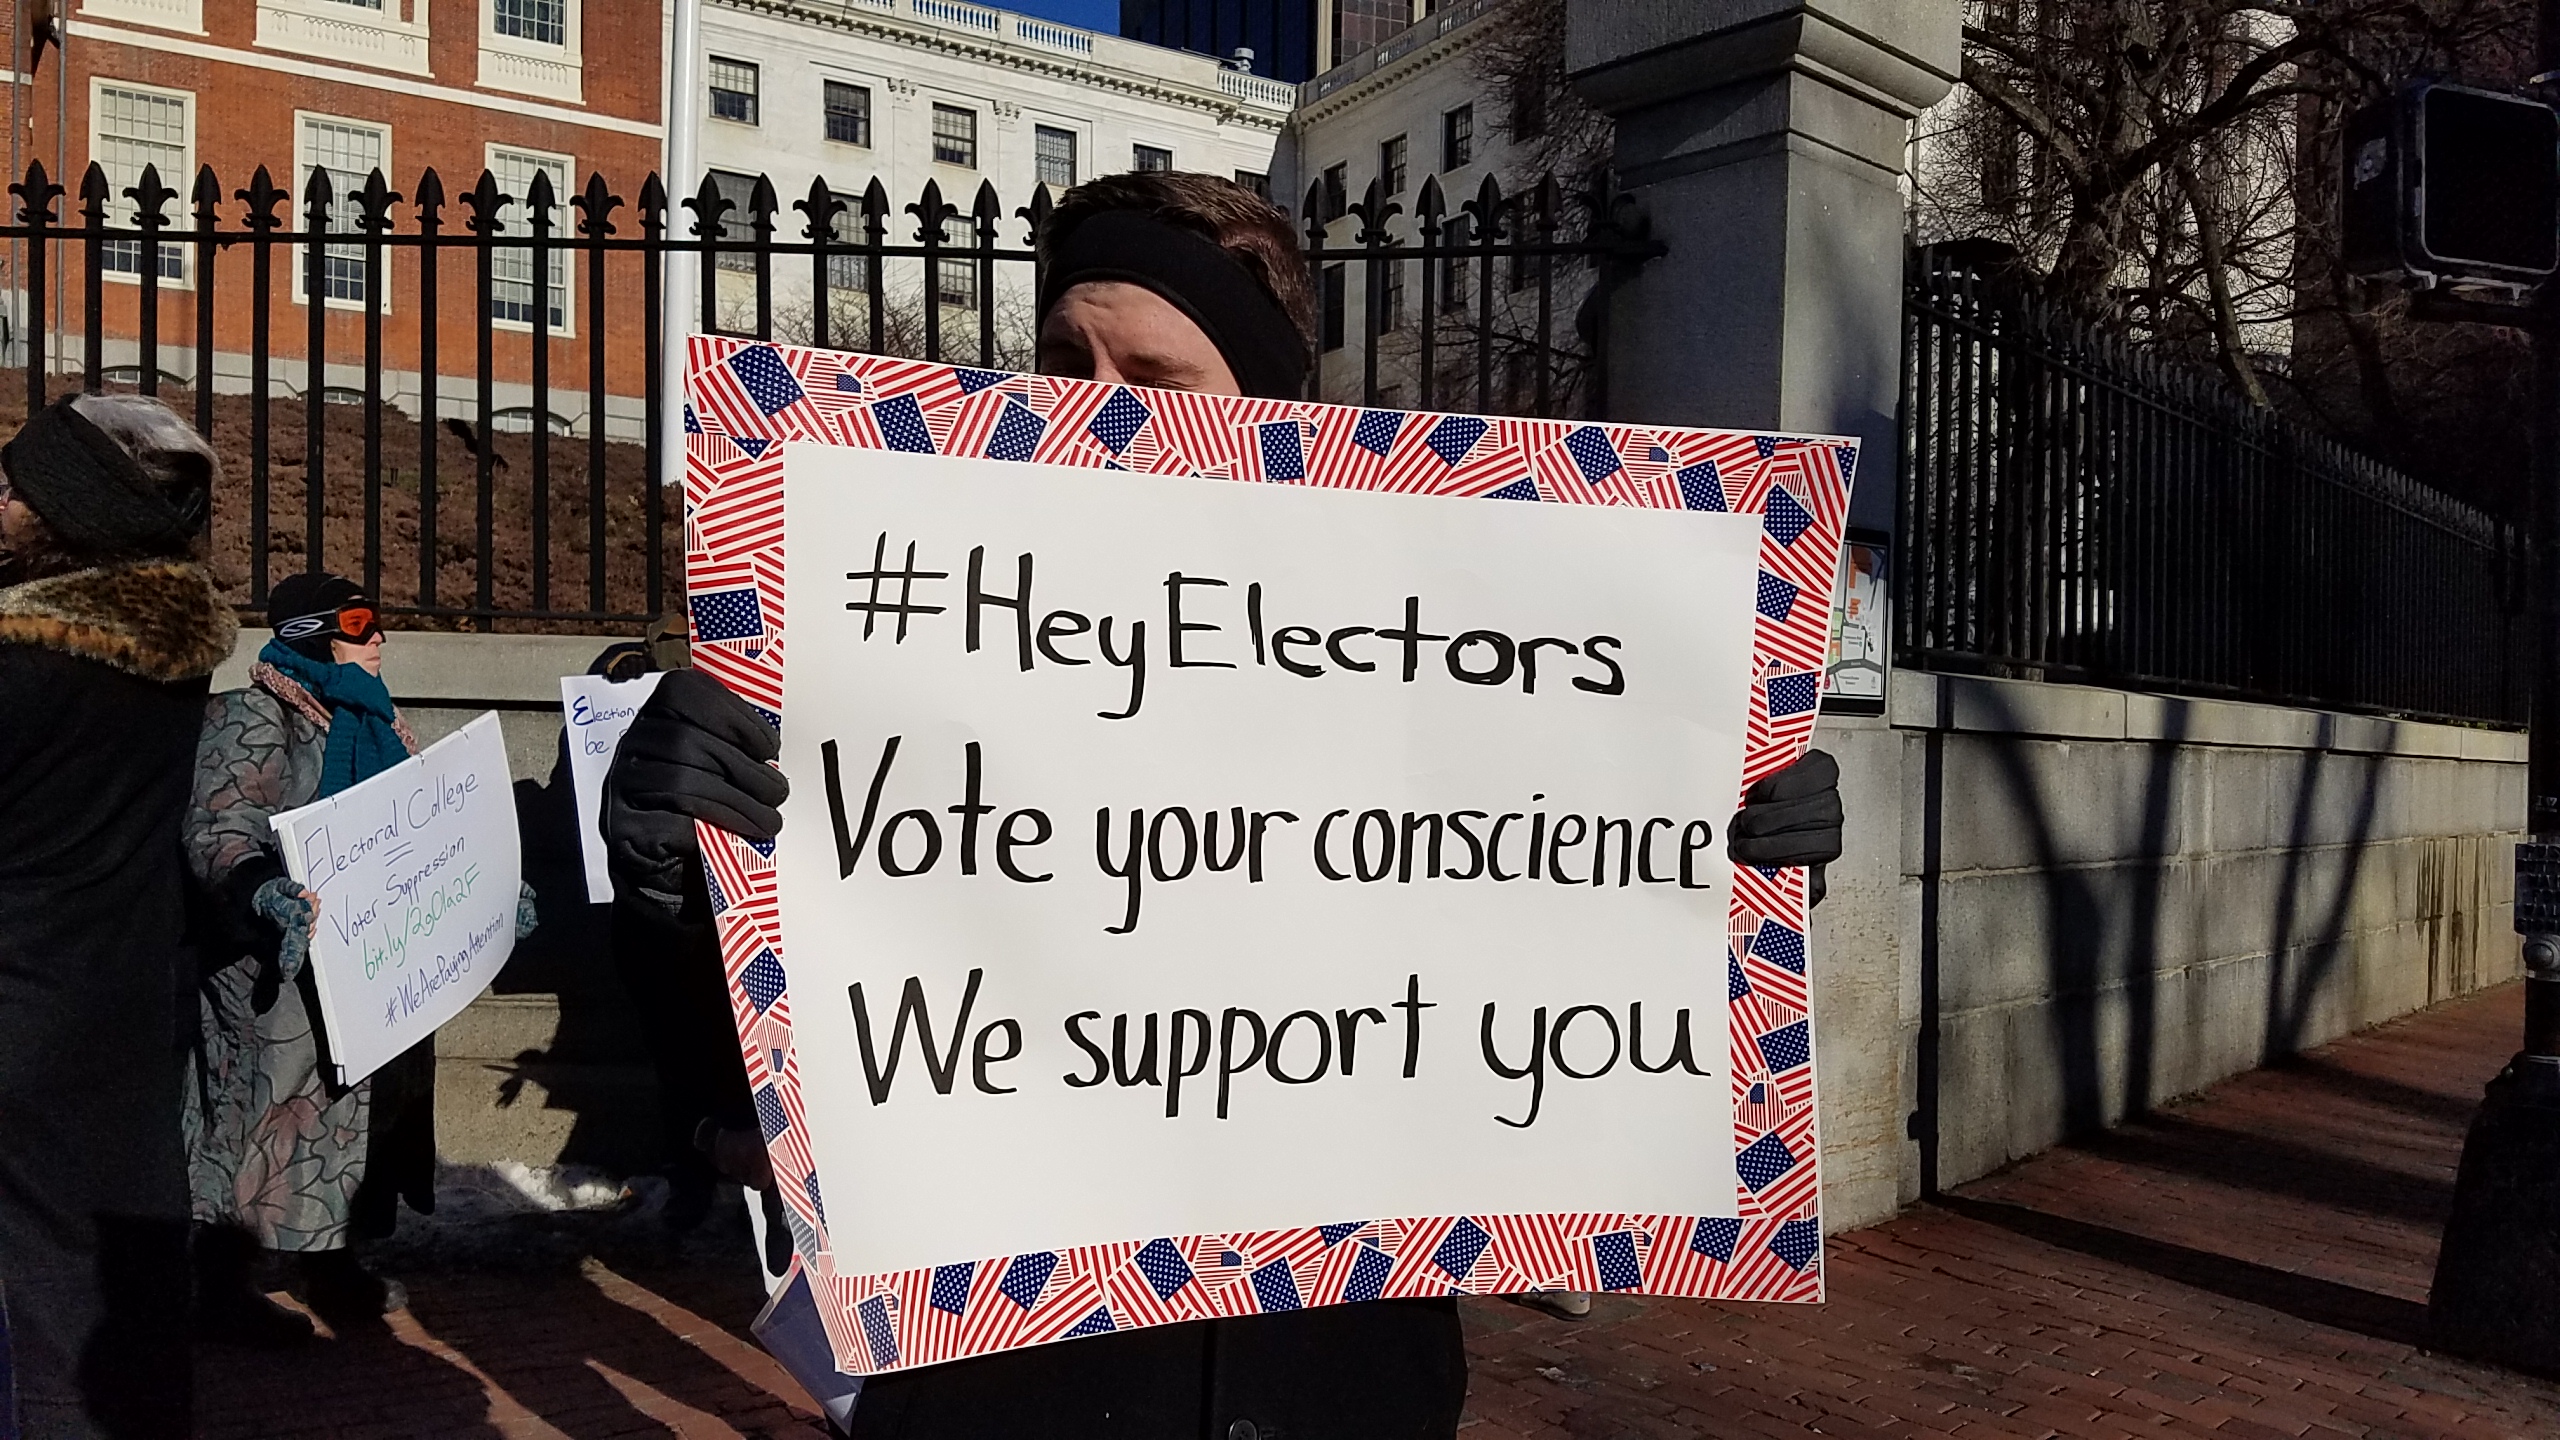 #HeyElectors
Vote your conscience
We support you
Electoral College
=
Voter Suppression
bit.ly/2gOla2F
#WeArePayingAttention
Election
be